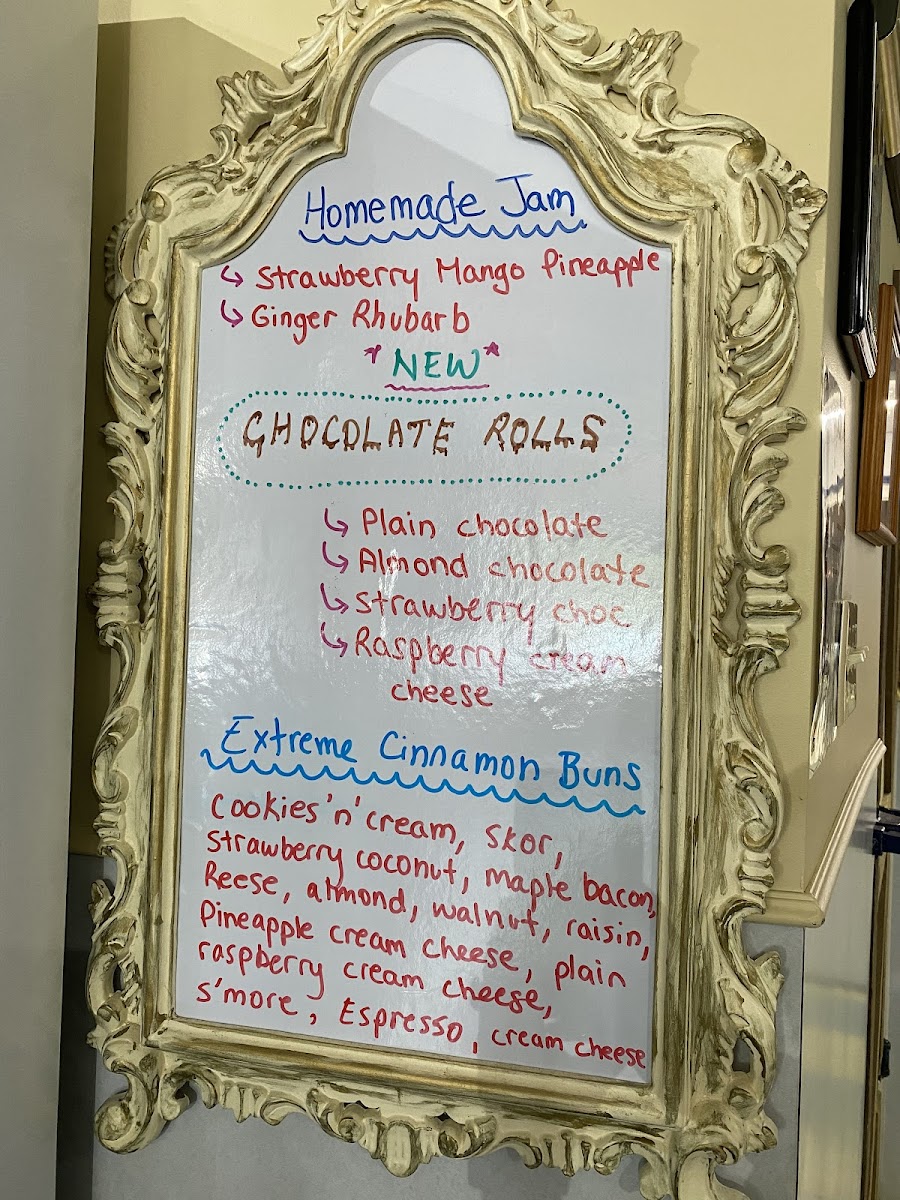 Homemade Jam
↳ Strawberry Mango Pineapple
↳ Ginger Rhubarb
*NEW*
CHOCOLATE ROLLS
↳ Plain chocolate
↳ Almond chocolate
↳ Strawberry choc
↳ Raspberry cream
cheese
Extreme Cinnamon Buns
Cookies 'n' cream, Skor,
Strawberry coconut, maple bacon,
Reese, almond, walnut, raisin,
Pineapple cream cheese, plain
raspberry cream cheese,
s'more, Espresso, cream cheese